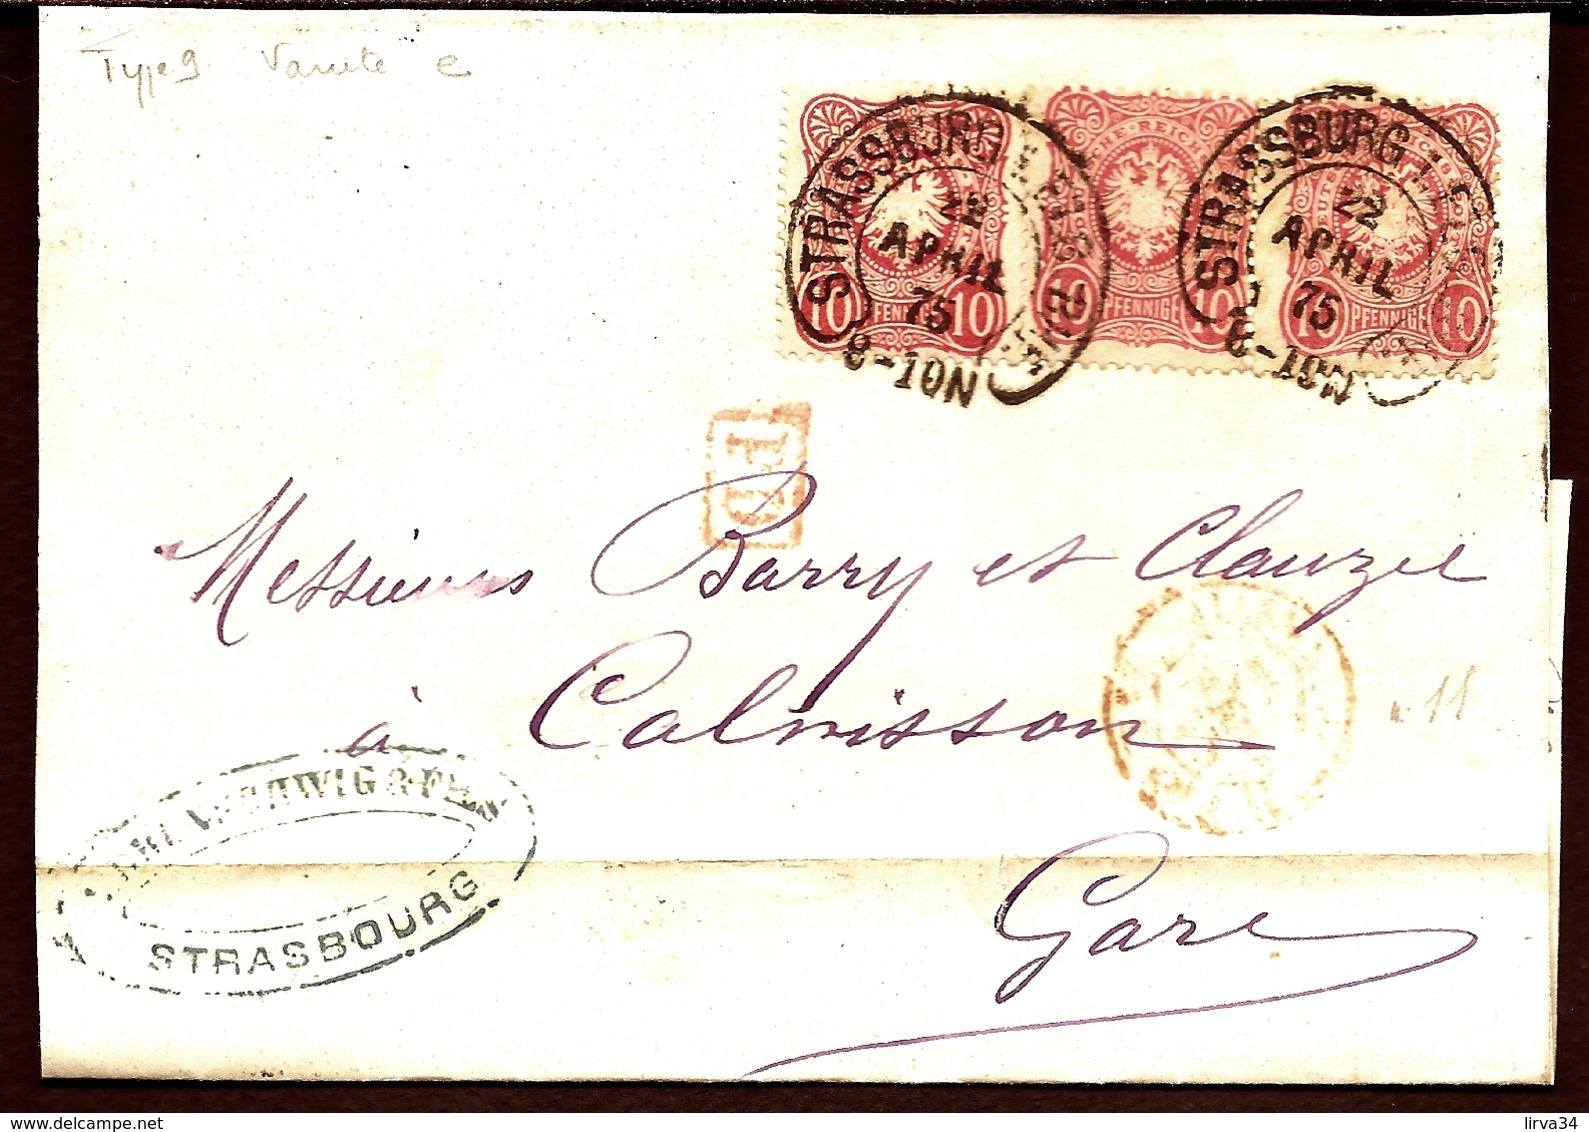 Type 9 Varieté e
STRASSBURG
22
APRIL
75
8-10N
STRASSBURG
22
APRIL
75
8-10N
REICH
10 PFENNIGE 10
10 PFENNIGE 10
10 PFENNIGE 10
P.D
Messieurs Barry et Clauzel
à Calvisson
Gare
STRASBOURG
delcampe.net
lirva34